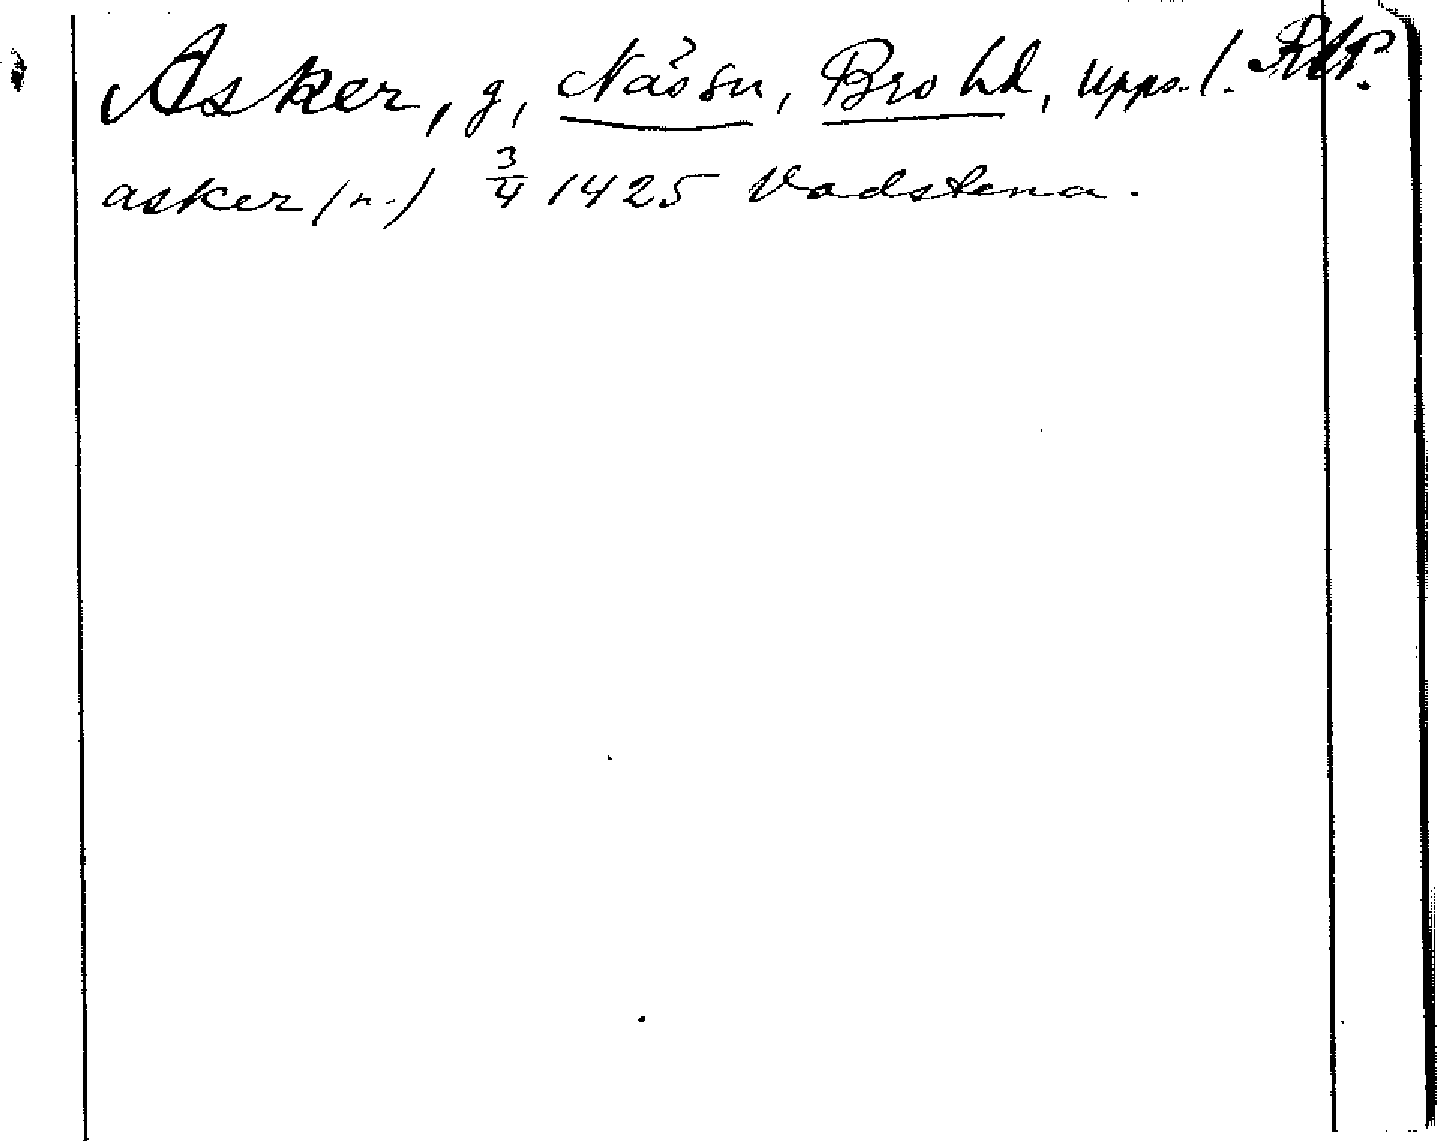 Asker, g, Näs sn, Bro hd, Uppl. RAP.
asker (n.) 3/4 1425 Vadstena.